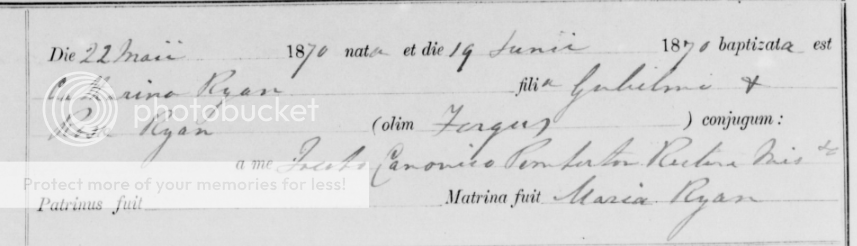 Die 22 Maii 1870 nata et die 19 Junii 1870 baptizata est
Catherina Ryan filia Gulielmi &
Rosa Ryan (olim Fergus) conjugum:
a me Jacobo Canonico Pemberton Rectore Mis
Patrinus fuit Matrina fuit Maria Ryan
photobucket
Protect more of your memories for less!